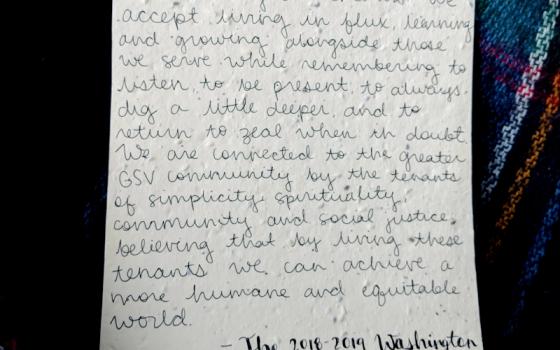 accept living in flux, learning
and growing alongside those
we serve while remembering to
listen, to be present, to always
dig a little deeper and to
return to zeal when in doubt.
We are connected to the greater
GSV community by the tenants
of simplicity, spirituality,
community and social justice,
believing that by living these
tenants we can achieve a
more humane and equitable
world.
- The 2018-2019 Washington